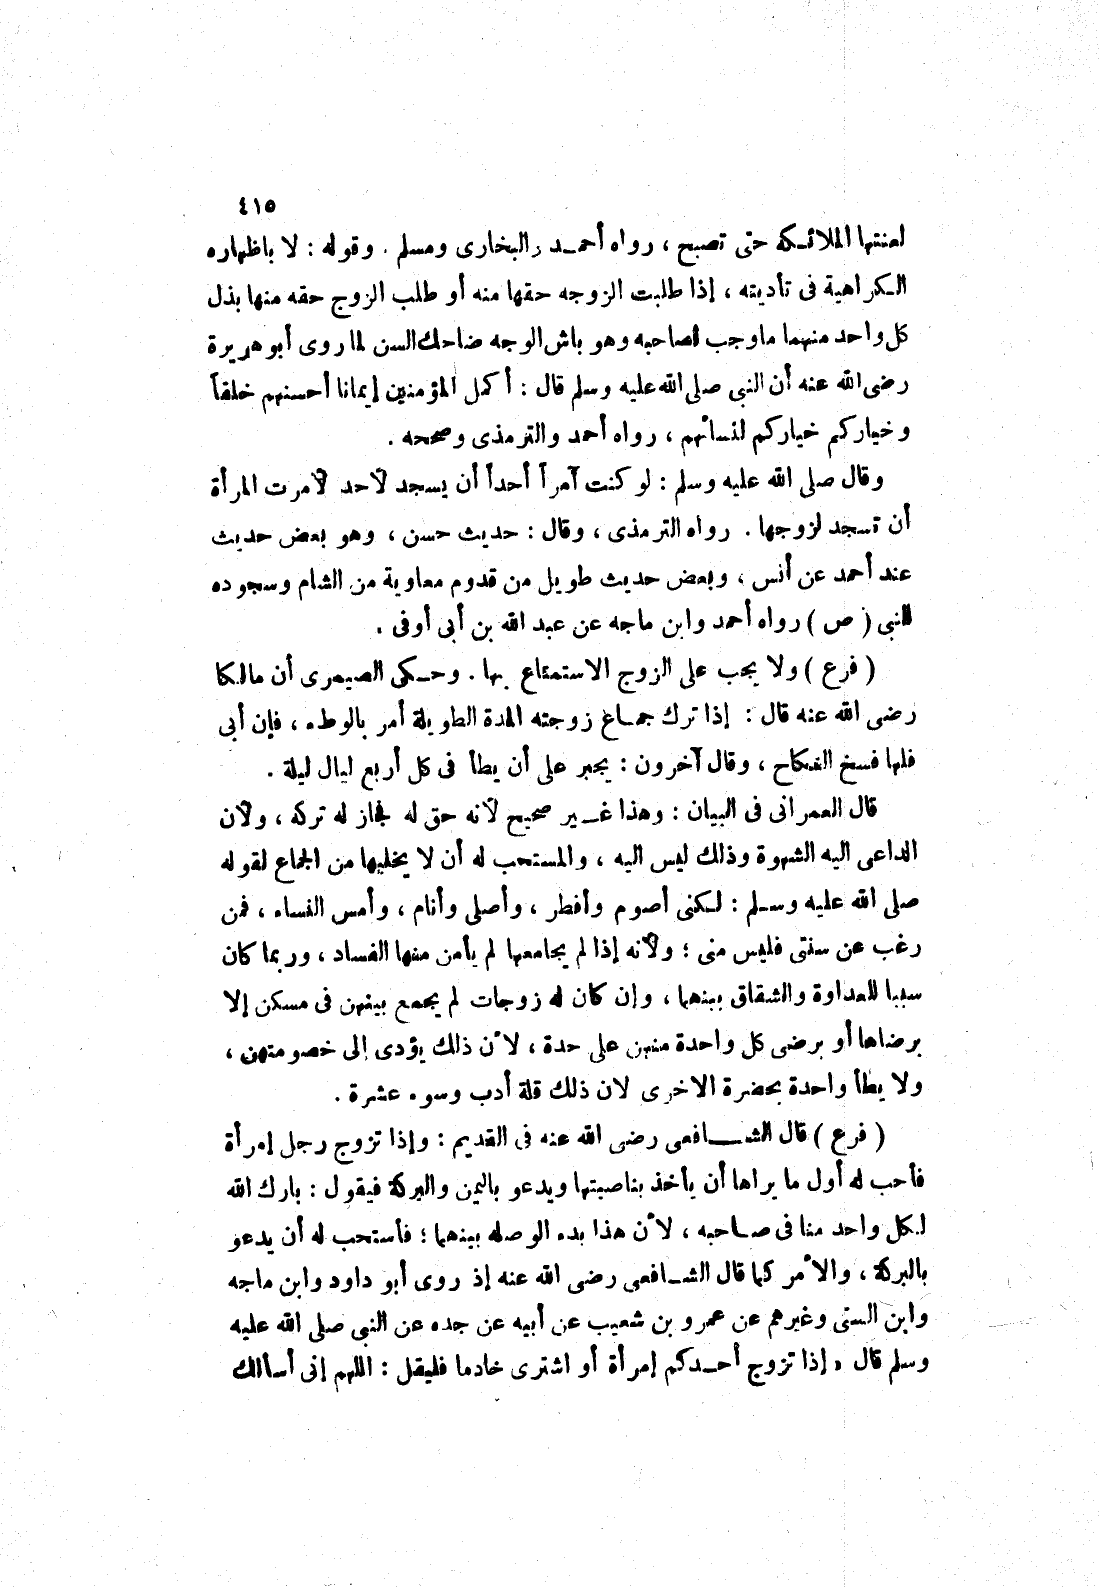 ٤١٥
لعنتها الملائكة حتى تصبح ، رواه أحمد والبخارى ومسلم . وقوله : لا باظهاره
الكراهية فى تأديته ، إذا طلبت الزوجه حقها منه أو طلب الزوج حقه منها بذل
كل واحد منهما ماوجب لصاحبه وهو باش الوجه ضاحك السن لما روى أبو هريرة
رضى الله عنه أن النبى صلى الله عليه وسلم قال : أكمل المؤمنين إيمانا أحسنهم خلقاً
وخياركم خياركم لنسائهم ، رواه أحمد والترمذى وصححه .
وقال صلى الله عليه وسلم : لو كنت آمراً أحداً أن يسجد لأحد لأمرت المرأة
أن تسجد لزوجها . رواه الترمذى ، وقال : حديث حسن ، وهو بعض حديث
عند أحمد عن أنس ، وبعض حديث طويل من قدوم معاوية من الشام وسجوده
للنبى ( ص ) رواه أحمد وابن ماجه عن عبد الله بن أبى أوفى .
( فرع ) ولا يجب على الزوج الاستمتاع بها . وحكى الصيمرى أن مالكا
رضى الله عنه قال : إذا ترك جماع زوجته المدة الطويلة أمر بالوطء ، فإن أبى
فلها فسخ النكاح ، وقال آخرون : يجبر على أن يطأ فى كل أربع ليال ليلة .
قال العمرانى فى البيان : وهذا غير صحيح لأنه حق له فجاز له تركه ، ولأن
الداعى اليه الشهوة وذلك ليس اليه ، والمستحب له أن لا يخليها من الجماع لقوله
صلى الله عليه وسلم : لكنى أصوم وأفطر ، وأصلى وأنام ، وأمس النساء ، فمن
رغب عن سنتى فليس منى ؛ ولأنه إذا لم يجامعها لم يأمن منها الفساد ، وربما كان
سببا للعداوة والشقاق بينهما ، وإن كان له زوجات لم يجمع بينهن فى مسكن إلا
برضاها أو برضى كل واحدة منهن على حدة ، لأن ذلك يؤدى إلى خصومتهن ،
ولا يطأ واحدة بحضرة الاخرى لان ذلك قلة أدب وسوء عشرة .
( فرع ) قال الشافعى رضى الله عنه فى القديم : وإذا تزوج رجل إمرأة
فأحب له أول ما يراها أن يأخذ بناصيتها ويدعو باليمن والبركة فيقول : بارك الله
لكل واحد منا فى صاحبه ، لأن هذا بدء الوصله بينهما ؛ فأستحب له أن يدعو
بالبركة ، والأمر كما قال الشافعى رضى الله عنه إذ روى أبو داود وابن ماجه
وابن السنى وغيرهم عن عمرو بن شعيب عن أبيه عن جده عن النبى صلى الله عليه
وسلم قال « إذا تزوج أحدكم إمرأة أو اشترى خادما فليقل : اللهم إنى أسألك